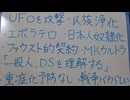 UFOを攻撃・民族浄化
エボラテロ・日本人奴隷化
ファウスト的契約・MKウルトラ
「殺人、DSを理解する」
重症化予防なし 戦争くわらしい